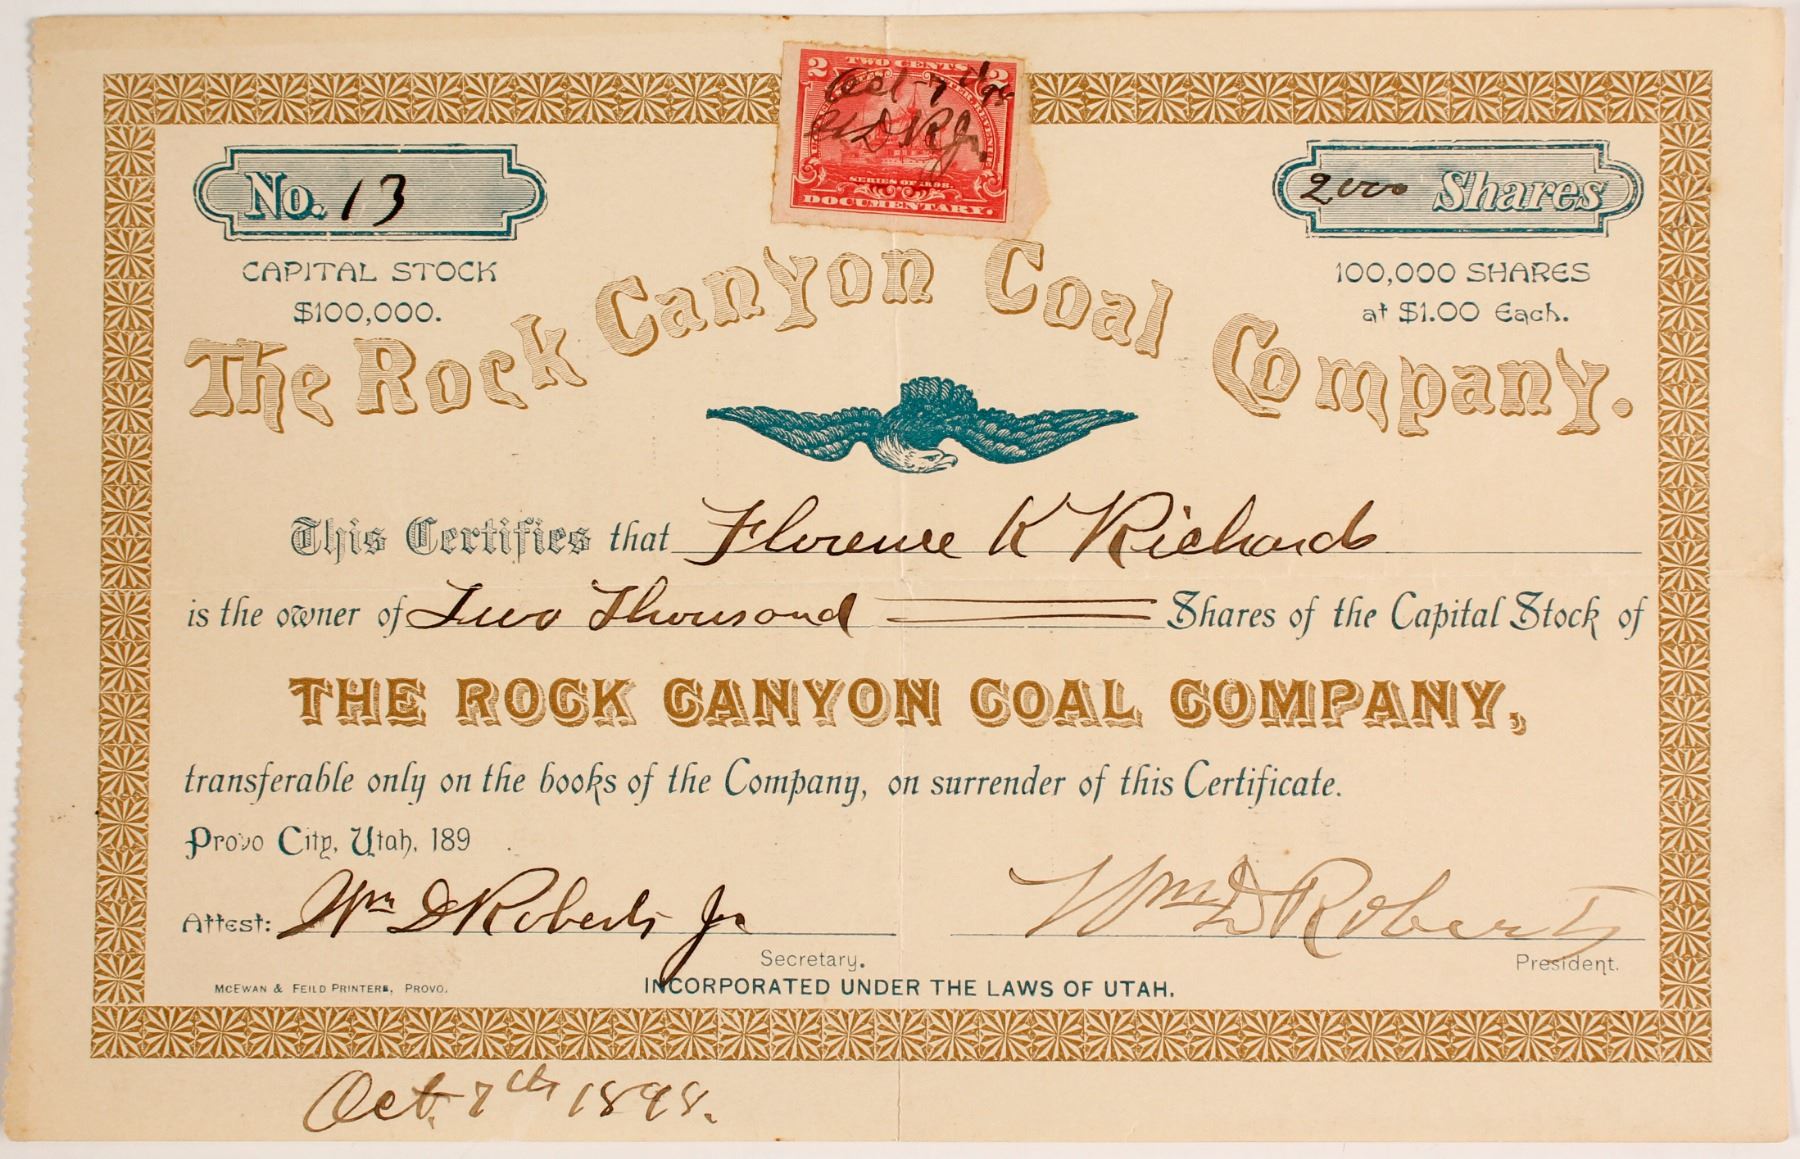 2 TWO CENTS 2
Oct 7th 98
W D R Jr.
SERIES OF 1898.
DOCUMENTARY.
No. 13
2000 Shares
CAPITAL STOCK
$100,000.
100,000 SHARES
at $1.00 Each.
The Rock Canyon Coal Company.
This Certifies that Florence K Richards
is the owner of Two Thousand Shares of the Capital Stock of
THE ROCK CANYON COAL COMPANY,
transferable only on the books of the Company, on surrender of this Certificate.
Provo City, Utah, 189
Attest: Wm D Roberts Jr
Wm D Roberts
Secretary.
President.
McEWAN & FEILD PRINTERS, PROVO.
INCORPORATED UNDER THE LAWS OF UTAH.
Oct. 7th 1898.